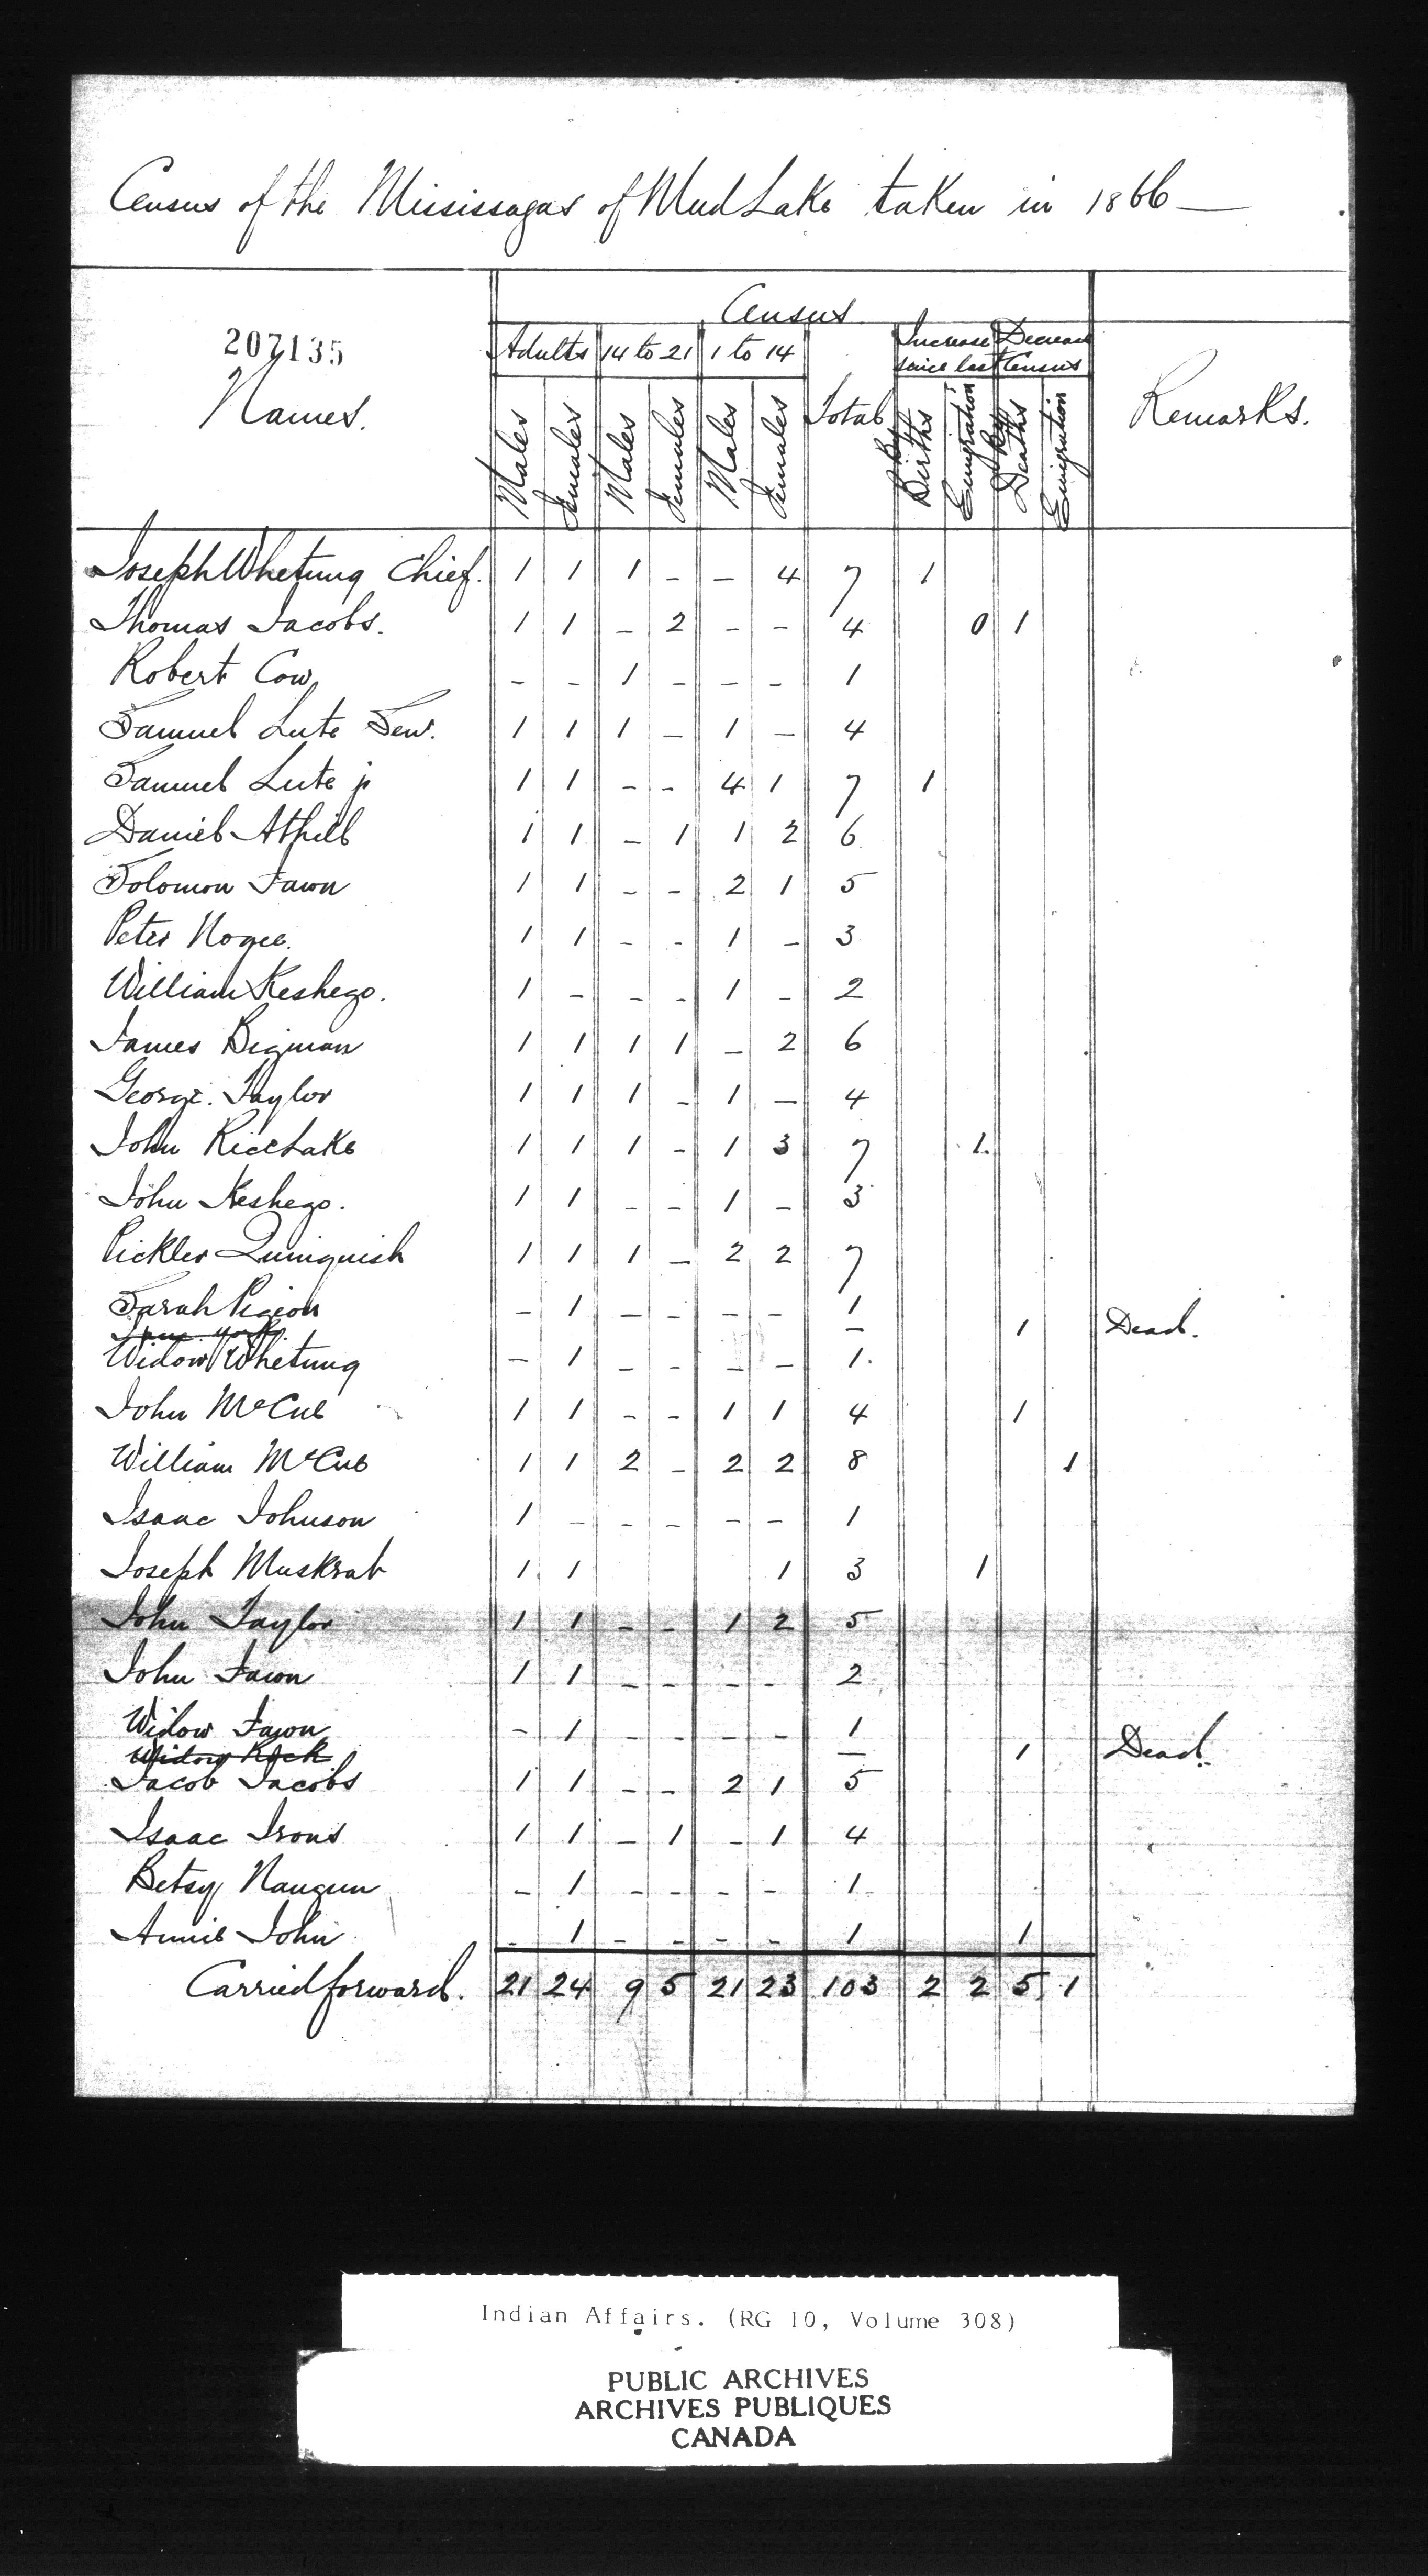 Census of the Mississagas of Mud Lake taken in 1866 —
207135
Names.
Census
Adults 14 to 21 1 to 14 Total Increase Decrease
since last Census
Males Females Males Females Males Females By Births Emigration By Deaths Emigration
Remarks.
Joseph Whetung Chief. 1 1 1 - - 4 7 1
Thomas Jacobs. 1 1 - 2 - - 4 0 1
Robert Cow - - 1 - - - 1
Samuel Lute Sen. 1 1 1 - 1 - 4
Samuel Lute jr 1 1 - - 4 1 7 1
Daniel Athill 1 1 - 1 1 2 6
Solomon Fawn 1 1 - - 2 1 5
Peter Nogee. 1 1 - - 1 - 3
William Keshego. 1 - - - 1 - 2
James Bigman 1 1 1 1 - 2 6
George. Taylor 1 1 1 - 1 - 4
John RiceLake 1 1 1 - 1 3 7 1.
John Keshego. 1 1 - - 1 - 3
Pickler Quinquish 1 1 1 - 2 2 7
Sarah Pigeon - 1 - - - - 1
Jane York. - 1 Dead.
Widow Whetung - 1 - - - - 1.
John McCue 1 1 - - 1 1 4 1
William McCue 1 1 2 - 2 2 8 1
Isaac Johnson 1 - - - - - 1
Joseph Muskrat 1. 1 1 3 1
John Taylor 1 1 - - 1 2 5
John Fawn 1 1 - - - - 2
Widow Fawn - 1 - - - - 1
Widow Rock - 1 Dead.
Jacob Jacobs 1 1 - - 2 1 5
Isaac Irons 1 1 - 1 - 1 4
Betsy Naugun - 1 - - - - 1
Annie John - 1 - - - - 1 1
Carried forward. 21 24 9 5 21 23 103 2 2 5 1
Indian Affairs. (RG 10, Volume 308)
PUBLIC ARCHIVES
ARCHIVES PUBLIQUES
CANADA